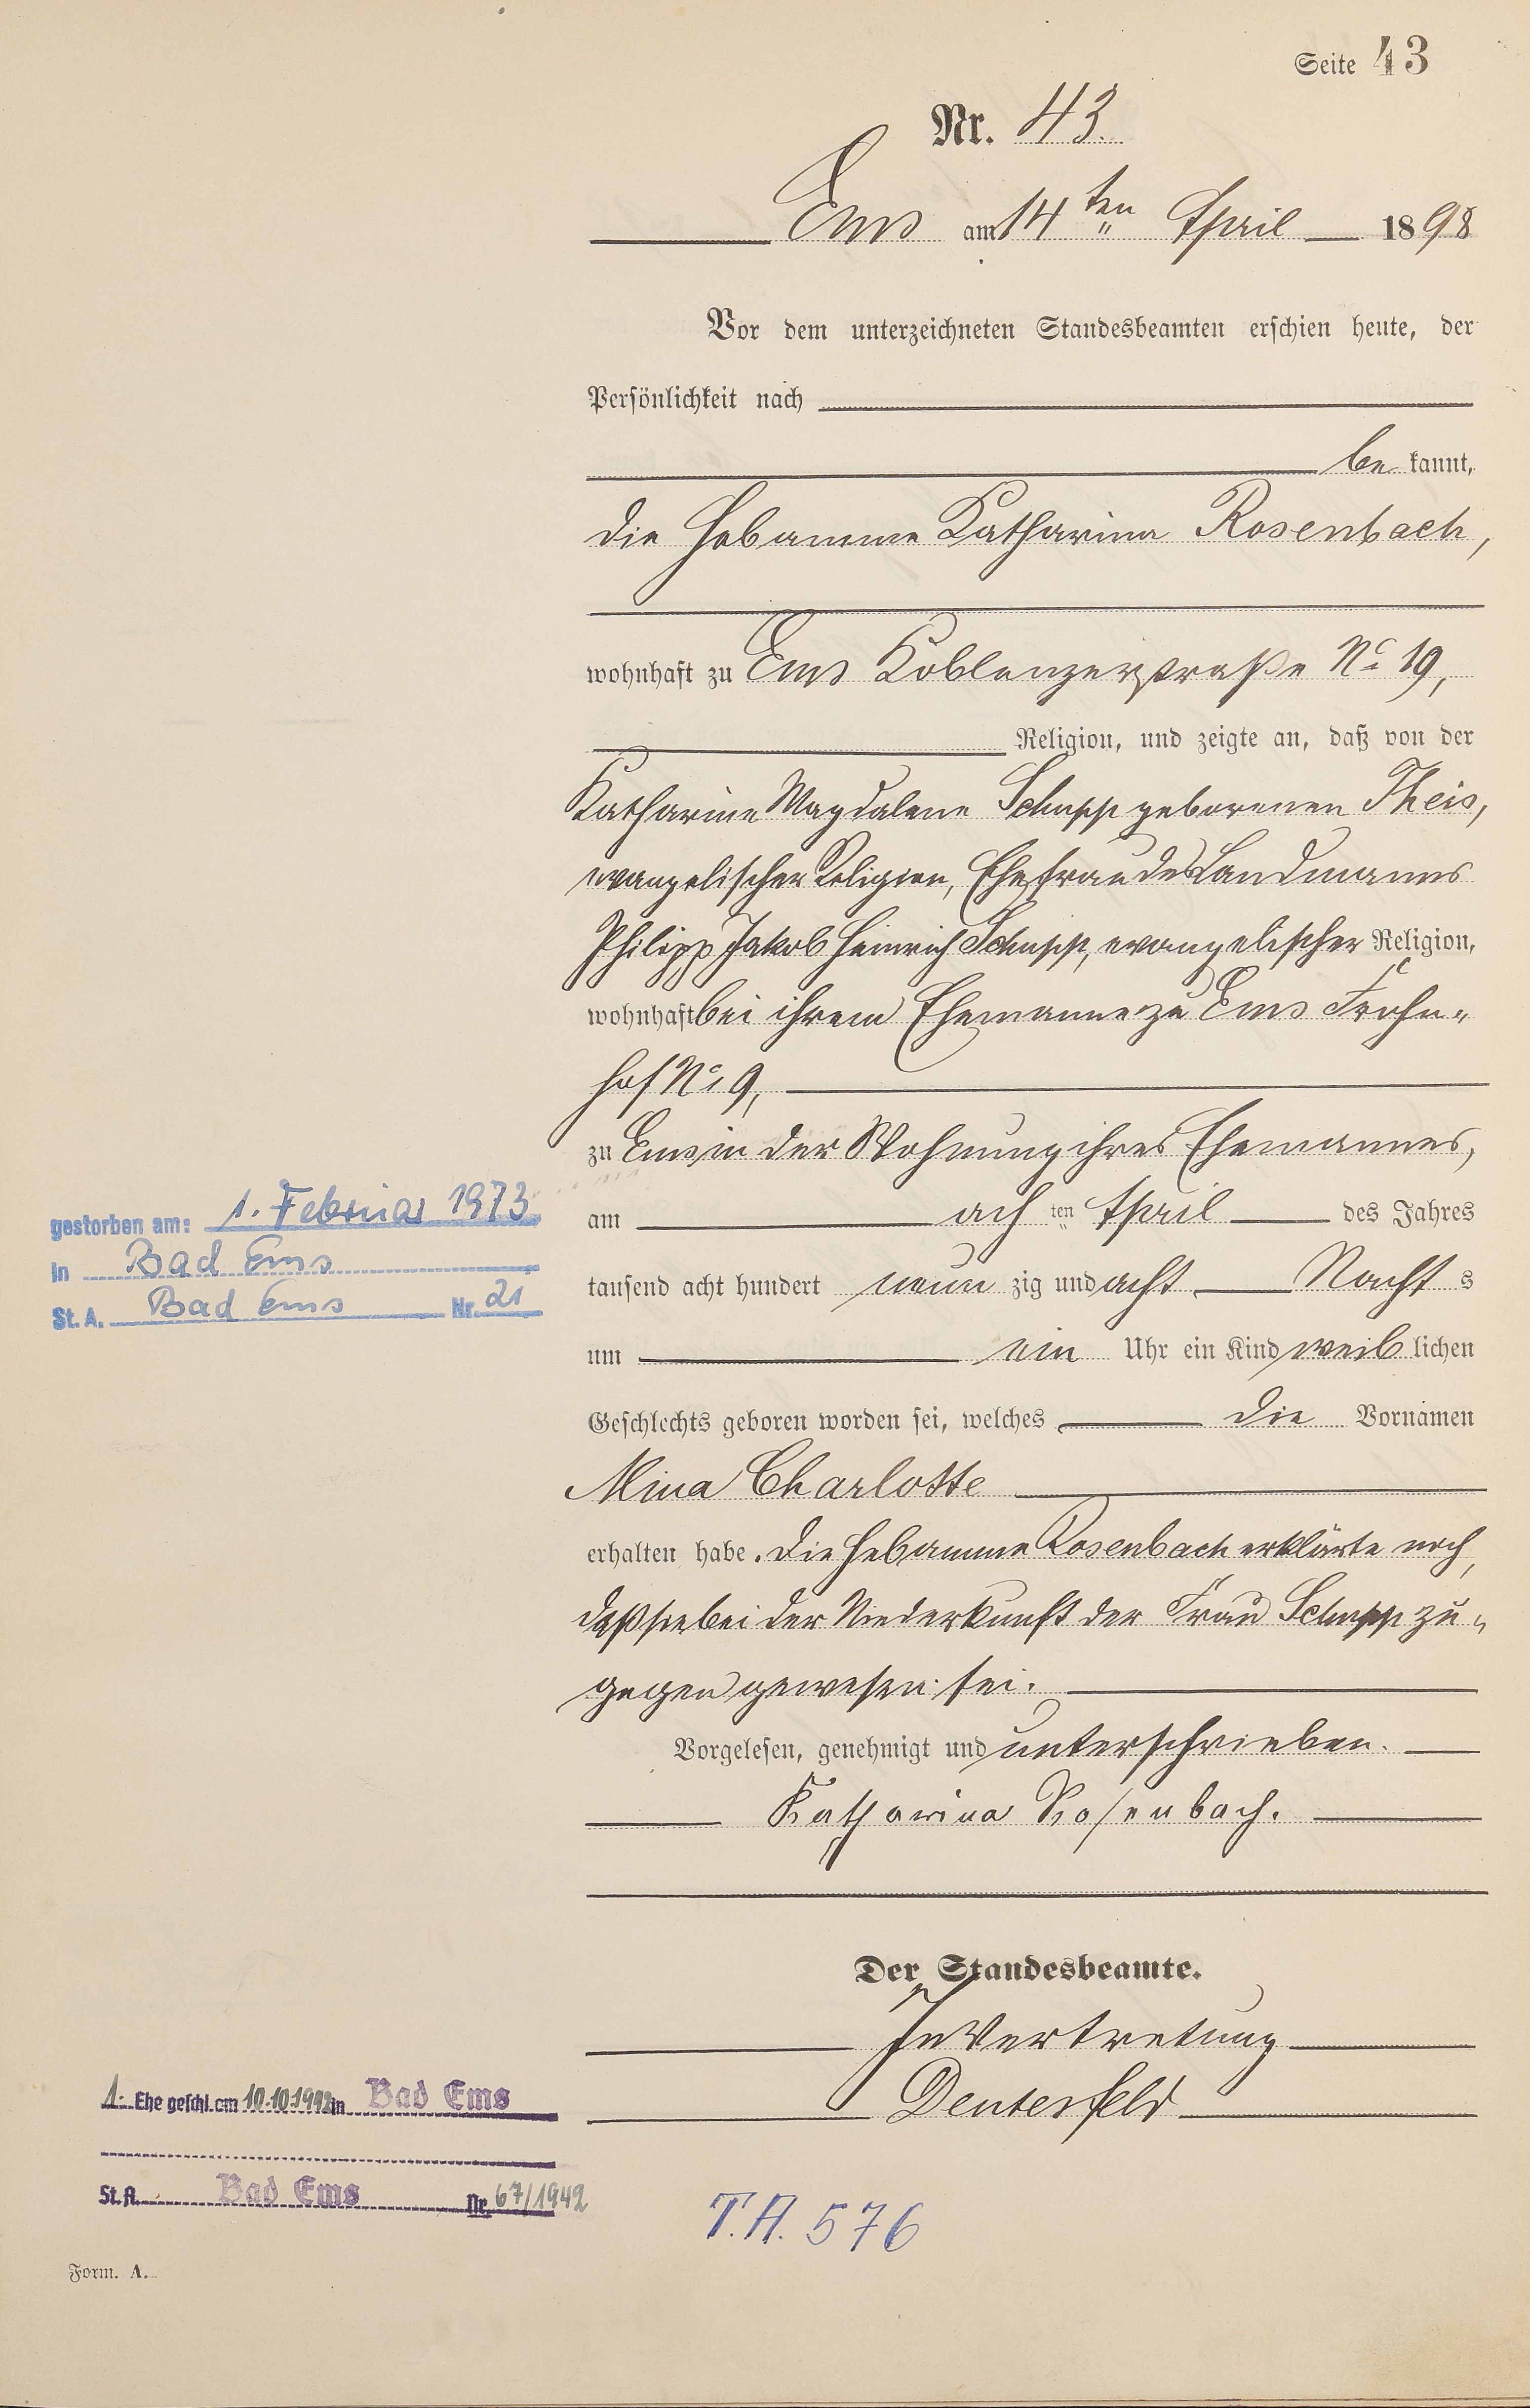 Seite 43
Nr. 43.
Ems am 14ten April 1898
Vor dem unterzeichneten Standesbeamten erschien heute, der
Persönlichkeit nach
be kannt,
die Hebamme Katharina Rosenbach,
wohnhaft zu Ems Koblenzerstraße No 19,
Religion, und zeigte an, daß von der
Katharine Magdalene Schupp geborenen Theis,
evangelischer Religion, Ehefrau des Landmannes
Philipp Jakob Heinrich Schupp, evangelischer Religion,
wohnhaft bei ihrem Ehemanne zu Ems Frohn-
hof No 9,
zu Ems in der Wohnung ihres Ehemannes,
am ach ten April des Jahres
tausend acht hundert neun zig und acht Nacht s
um ein Uhr ein Kind weib lichen
Geschlechts geboren worden sei, welches die Vornamen
Mina Charlotte
erhalten habe. Die Hebamme Rosenbach erklärte noch,
daß sie bei der Niederkunft der Frau Schupp zu-
gegen gewesen sei.
Vorgelesen, genehmigt und unterschrieben.
Katharina Rosenbach.
Der Standesbeamte.
In Vertretung
Deutesfeld
gestorben am: 1. Februar 1973
in Bad Ems
St. A. Bad Ems Nr. 21
1. Ehe geschl. am 10.10.1942 in Bad Ems
St. A. Bad Ems Nr. 67/1942
T.A. 576
Form. A.